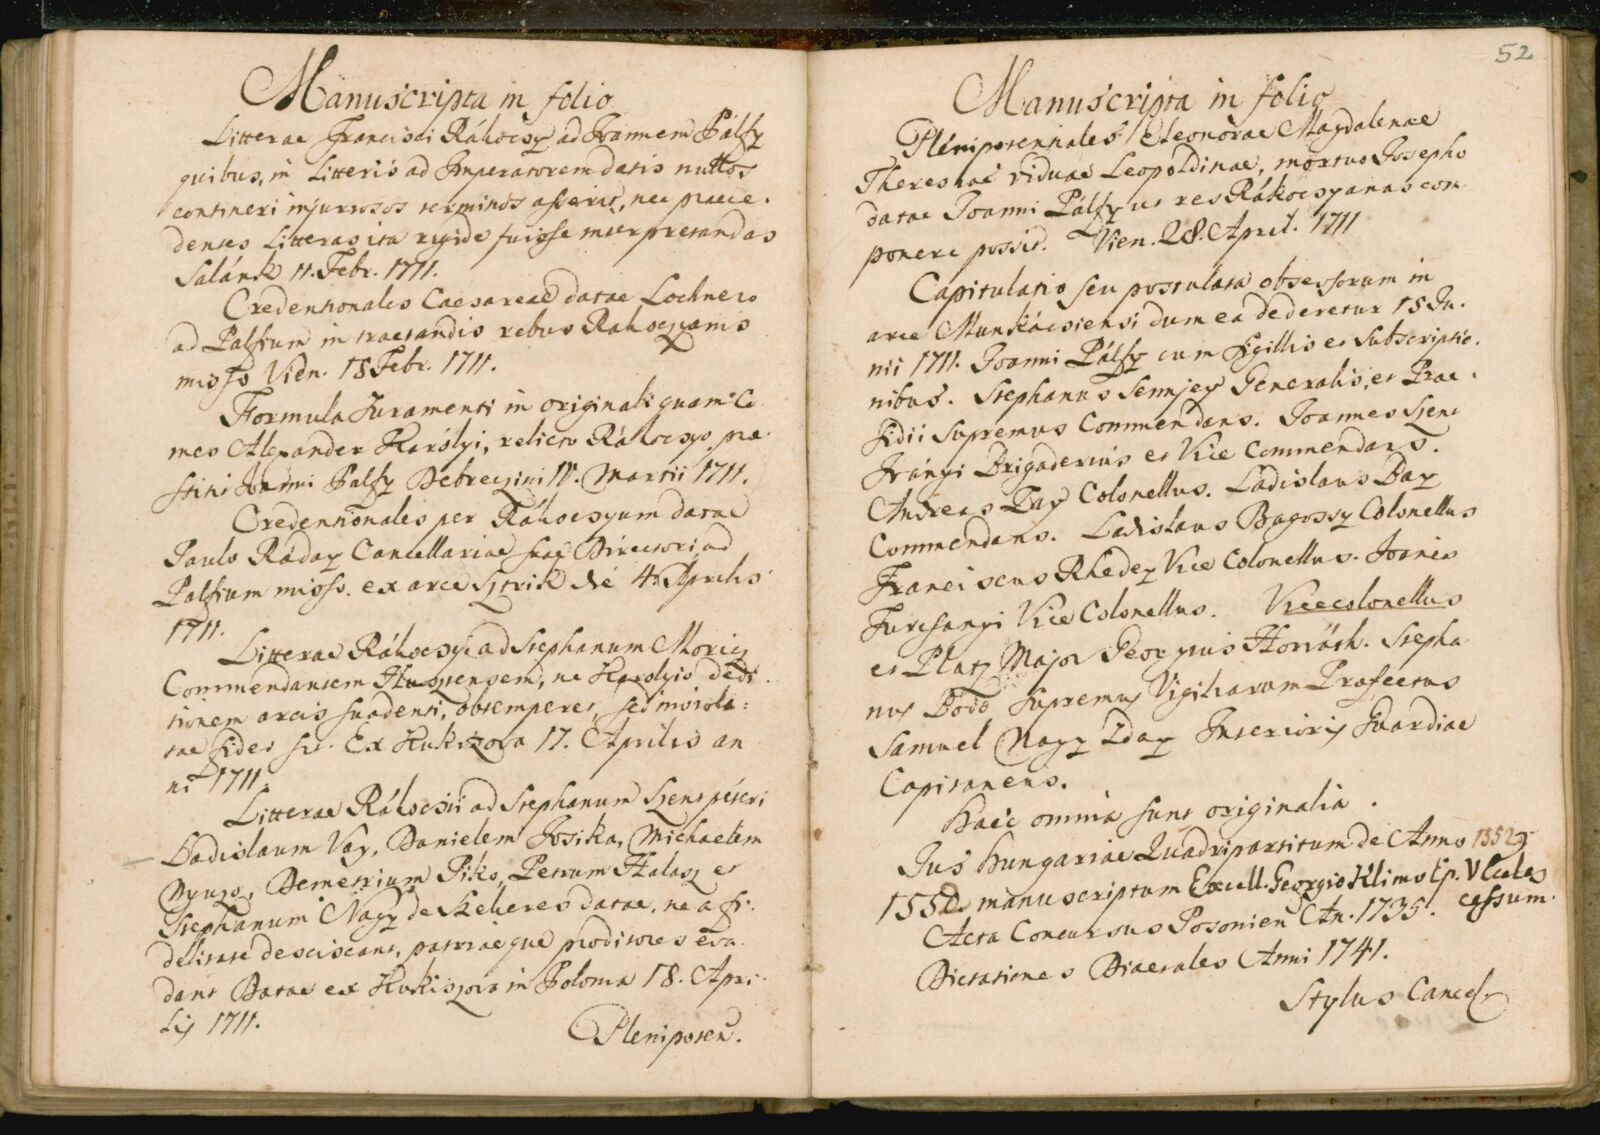 Manuscripta in folio
Litterae Francisci Rákoczy ad Joannem Pálfy
quibus, in Litteris ad Imperatorem datis nullos
contineri injuriosos terminos asserit, nec praece-
dentes Litteras ita rigide fuisse interpretandas
Salánk 11. Febr. 1711.
Credentionales Caesareae datae Lochero
ad Palfium in tractandis rebus Rakoczyanis
misso Vien. 18 Febr. 1711.
Formula Juramenti in originali quam Co
mes Alexander Károlyi, relicto Rákoczyo, prae
stitit Joanni Palfy Debreczini 14. Martii 1711.
Credentionales per Rákoczyum datae
Paulo Ráday Cancellariae suae Directori, ad
Palfium misso. ex arce Sztrik die 4. Aprilis
1711.
Litterae Rákoczii ad Stephanum Moricz
Commendantem Husztensem, ne Károlyio dedi-
tionem arcis suadenti, obtemperet, sed inviola-
tae fidei sit. Ex Kukizova 17. Aprilis an
ni 1711
Litterae Rákoczii ad Stephanum Szentpéteri
Ladislaum Vay, Danielem Josika, Michaelem
Nyuzo, Demetrium Piko, Petrum Halasz et
Stephanum Nagy de Szekeres datae, ne a fi-
delitate desciscant, patriaeque proditores eva
dant Datae ex Kukiszova in Polonia 18. Apri-
lis 1711.
Plenipoten.
52
Manuscripta in folio
Plenipotentiales Eleonorae Magdalenae
Theresiae viduae Leopoldinae, mortuo Josepho
datae Joanni Pálfy ut res Rákoczyanas com
ponere possit. Vien. 28. April. 1711
Capitulatio seu postulata obsessorum in
arce Munkácsiensi dum ea dederetur 15 Ju-
nii 1711. Joanni Pálfy cum sigillis et Subscriptio-
nibus. Stephanus Sennyey Generalis, et Prae-
sidii Supremus Commendans. Joannes Szent
Iványi Brigaderius et Vice Commendans.
Andreas Fay Colonellus. Ladislaus Bay
Commendans. Ladislaus Bagossy Colonellus
Franciscus Rhedey Vice Colonellus. Joanes
Furesanyi Vice Colonellus. Vicecolonellus
et Platz Major Georgius Horváth. Stepha
nus Bodo Supremus Vigiliarum Praefectus
Samuel Nagy Iday Interioris Guardiae
Capitaneus.
Haec omnia sunt originalia.
Jus Hungariae Quadripartitum de Anno 1552
1552. manuscriptum Excell. Georgio Klimo Ep. V Eccles
cessum.
Acta Concursus Posonien An. 1735.
Dictationes Diaetales Anni 1741.
Stylus Cancel.